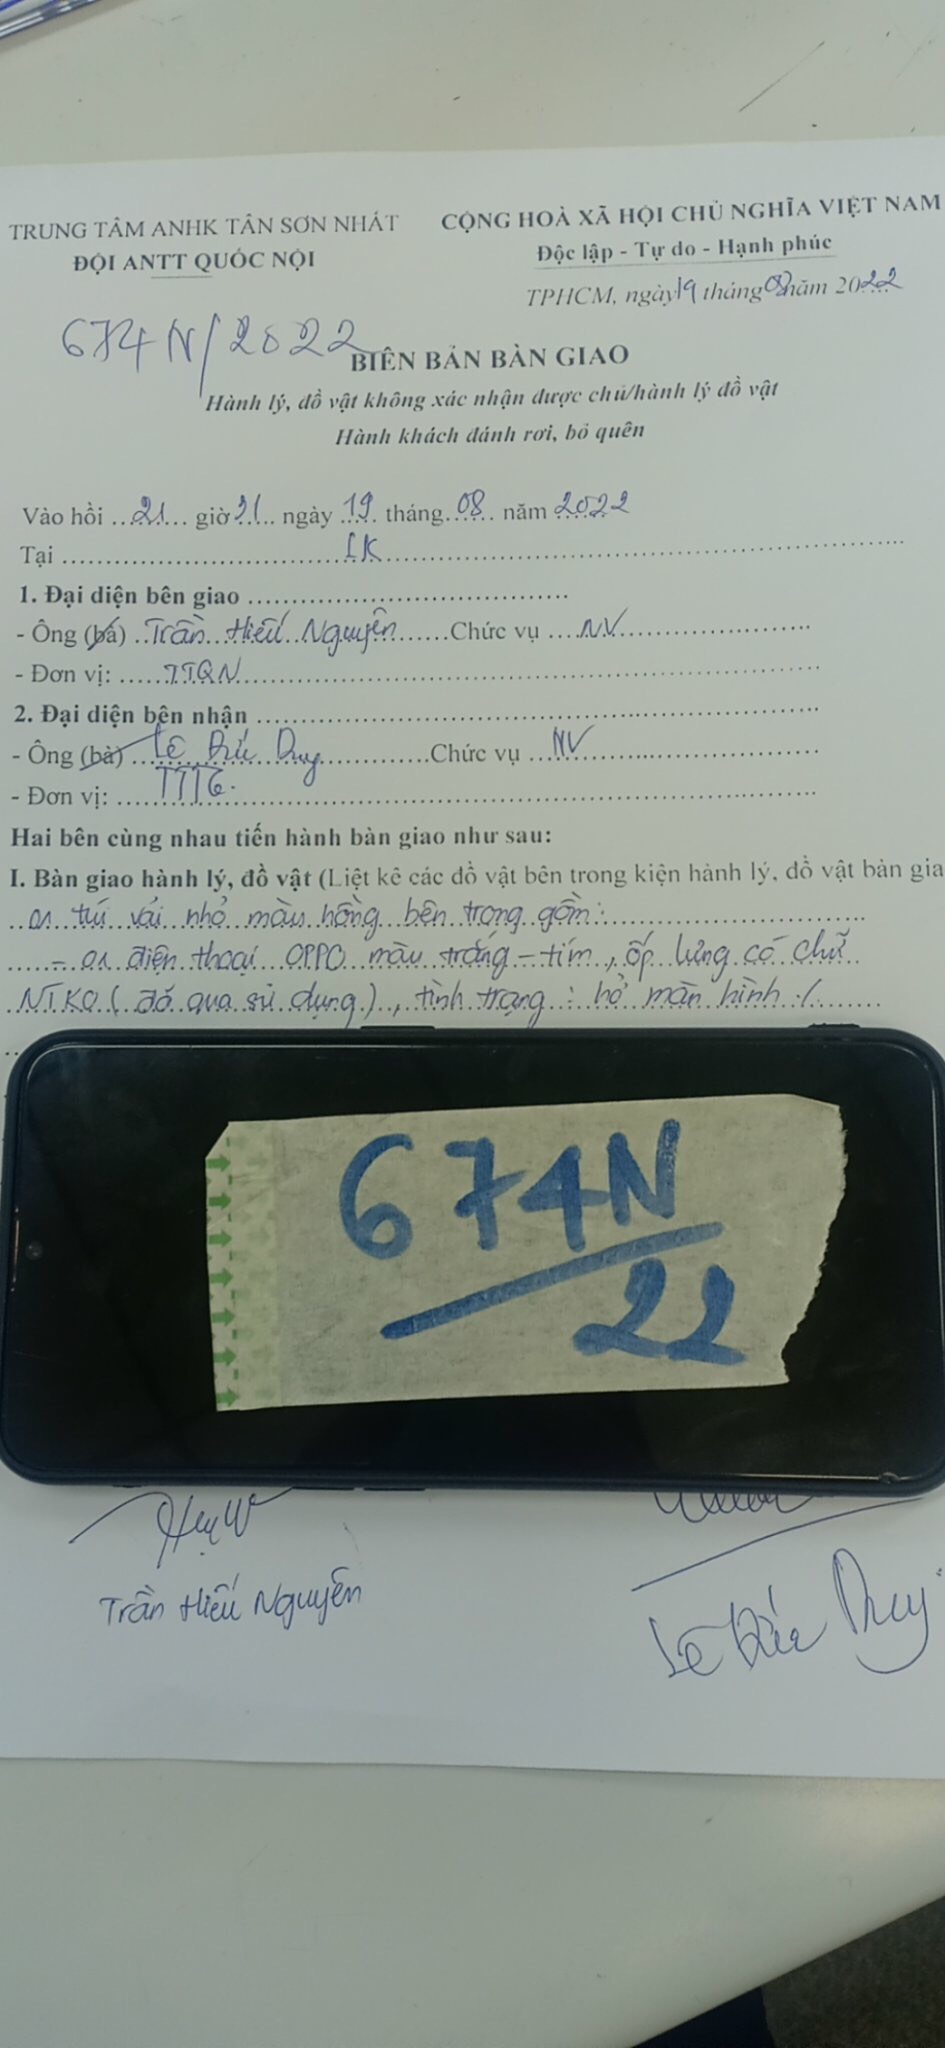 TRUNG TÂM ANHK TÂN SƠN NHẤT
ĐỘI ANTT QUỐC NỘI
CỘNG HOÀ XÃ HỘI CHỦ NGHĨA VIỆT NAM
Độc lập - Tự do - Hạnh phúc
TPHCM, ngày 19 tháng 08 năm 2022
674N/2022
BIÊN BẢN BÀN GIAO
Hành lý, đồ vật không xác nhận được chủ/hành lý đồ vật
Hành khách đánh rơi, bỏ quên
Vào hồi 21 giờ 21 ngày 19 tháng 08 năm 2022
Tại IK
1. Đại diện bên giao
- Ông (bà) Trần Hiếu Nguyên Chức vụ NV
- Đơn vị: TTQN
2. Đại diện bên nhận
- Ông (bà) Lê Đức Duy Chức vụ NV
- Đơn vị:
Hai bên cùng nhau tiến hành bàn giao như sau:
I. Bàn giao hành lý, đồ vật (Liệt kê các đồ vật bên trong kiện hành lý, đồ vật bàn gia
01 túi vải nhỏ màu hồng bên trong gồm:
- 01 điện thoại OPPO màu trắng - tím, ốp lưng có chữ
NIKO (đã qua sử dụng), tình trạng: hở màn hình ./.
674N
22
Trần Hiếu Nguyên
Lê Đức Duy